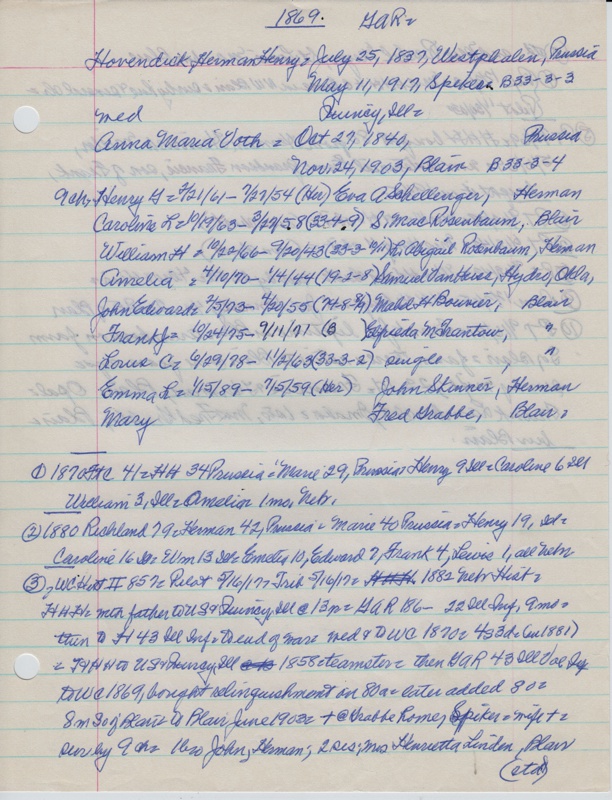 1869. GAR=
Hovendick, Herman Henry = July 25, 1837, Westphalen, Prussia
May 11, 1917, Spiker B33-3-3
wed Quincy, Ill =
Anna Maria Voth = Oct 27, 1840, Prussia
Nov. 24, 1903, Blair B33-3-4
9 ch, Henry G = 2/21/61 - 7/27/54 (Her) Eva A Schellenger, Herman
Caroline L = 10/19/63 - 3/29/58 (33-4-9) S. Mac Rosenbaum, Blair
William H = 10/20/66 - 9/20/43 (33-3- L. Abigail Rosenbaum, Herman
Amelia = 4/10/70 - 1/4/44 (19-2-8) Samuel Van Hoise, Hydro, Okla,
John Edward = 2/5/73 - 4/20/55 (74-8- Mabel H Bouvier, Blair
Frank J = 10/24/75 - 9/11/71 (B) Cepieda M Frantow, "
Louis C = 6/29/78 - 11/2/63 (33-3-2) single "
Emma L = 1/15/89 - 7/5/59 (Her) John Skinner, Herman
Mary Fred Grabbe, Blair =
① 1870 FtC 41 = HH 34 Prussia = Marie 29, Prussia = Henry 9 Ill = Caroline 6 Ill
William 3, Ill = Amelia 1 mo, Nebr.
② 1880 Richland 79 = Herman 42, Prussia = Marie 40 Prussia = Henry 19, Ill =
Caroline 16 Ill = Wm 13 Ill = Emelia 10, Edward 7, Frank 4, Lewis 1, all Nebr
③ = WC Hist II 857 = Pilot 5/16/17 = Trib 5/16/17 = H.H.H. 1882 Nebr Hist =
HHH = mother father to US & Quincy Ill @ 13m = GAR 186- 22 Ill Inf, 9 mo =
then to H 43 Ill Inf = to end of war = wed & to WC 1870 = 4s 3d = (in 1881)
= FHH to US & Quincy, Ill 1858 = teamster = then GAR 43 Ill Vol Inf
to WC 1869, bought relinquishment on 80a = later added 80 =
8m SO of Blair = to Blair June 1903 = + @ Grabbe home, Spiker = wife + =
sur by 9 ch = 1 bro John, Herman; 2 sis; Mrs Henrietta Linden, Blair
(etd)